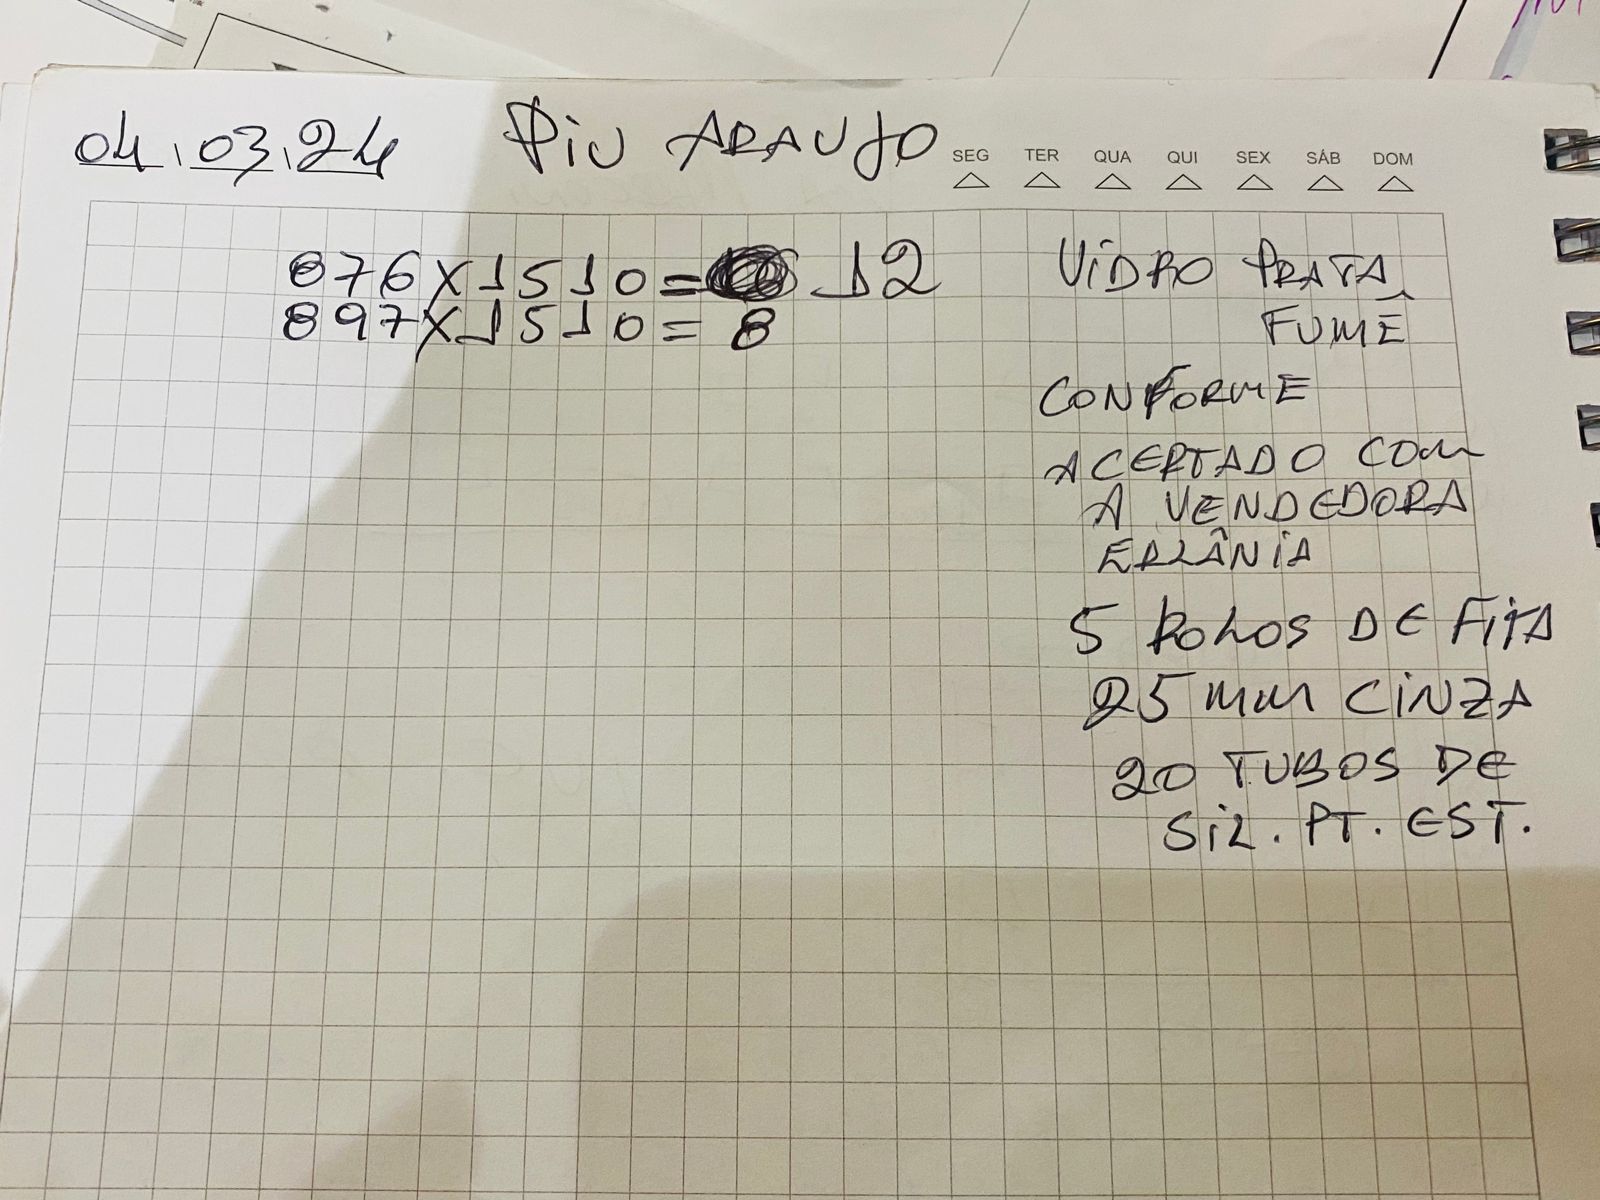 04.03.24 PIU ARAUJO
SEG TER QUA QUI SEX SÁB DOM
876X1510= 12
897X1510= 8
VIDRO PRATA
FUMÊ
CONFORME
ACERTADO COM
A VENDEDORA
ERLÂNIA
5 ROLOS DE FITA
25 MM CINZA
20 TUBOS DE
SIL. PT. EST.